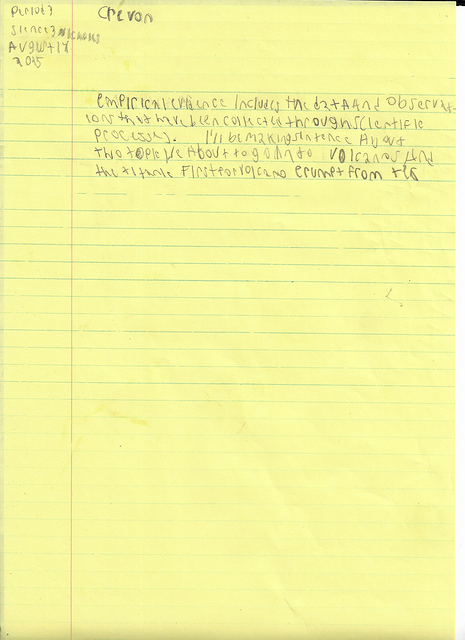 Period 3
Crevon
Sience 3
August 17
2015
empirical evidence includes the data and observat-
ions that have been collected through scientific
processes. I'll be making sintence About
two topic We About to go in to Volcanos And
the titanic First for volcano erumpt from the